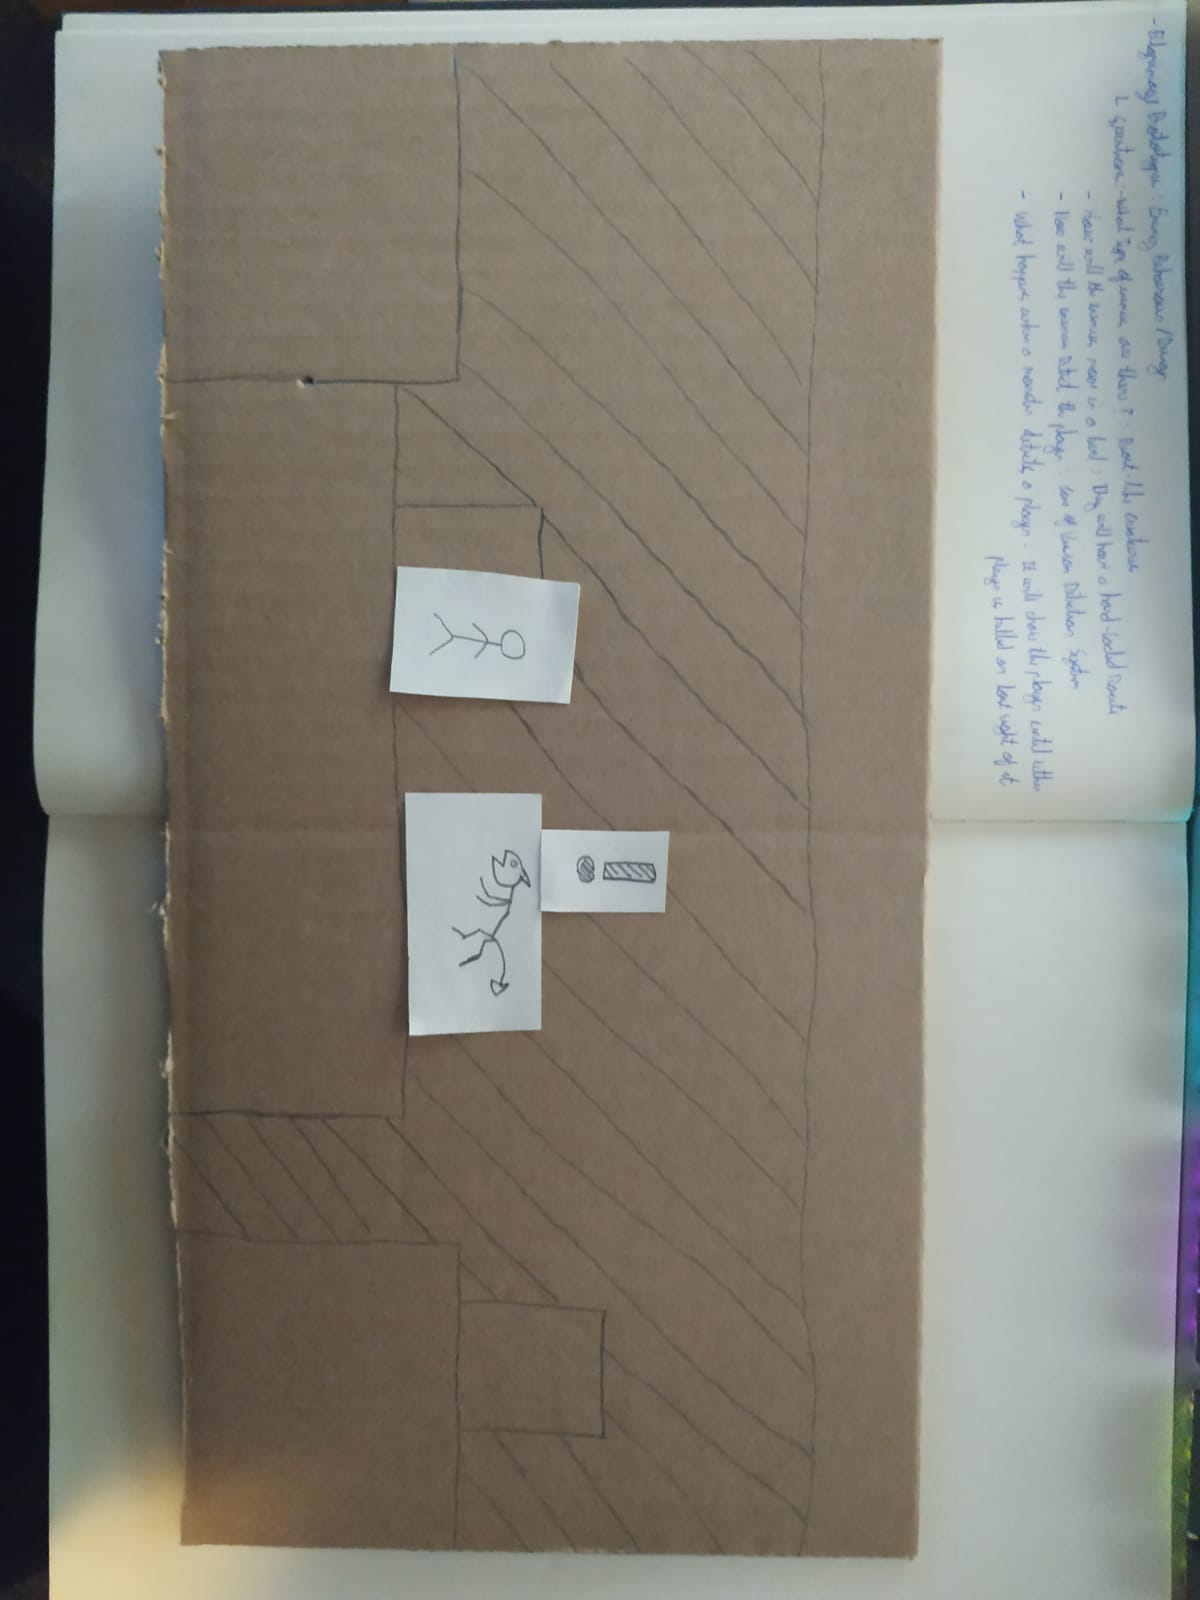 - Pilgrimage Prototype : Enemy Behaviour / Design
L Questions : - What type of enemies are there? : Beast-like creatures
- How will the enemies move in a level : They will have a hard-coded Route
- How will the enemies detect the player : Cone of Vision Detection System
- What happens when a monster detects a player : It will chase the player until either
player is killed or lost sight of it
!